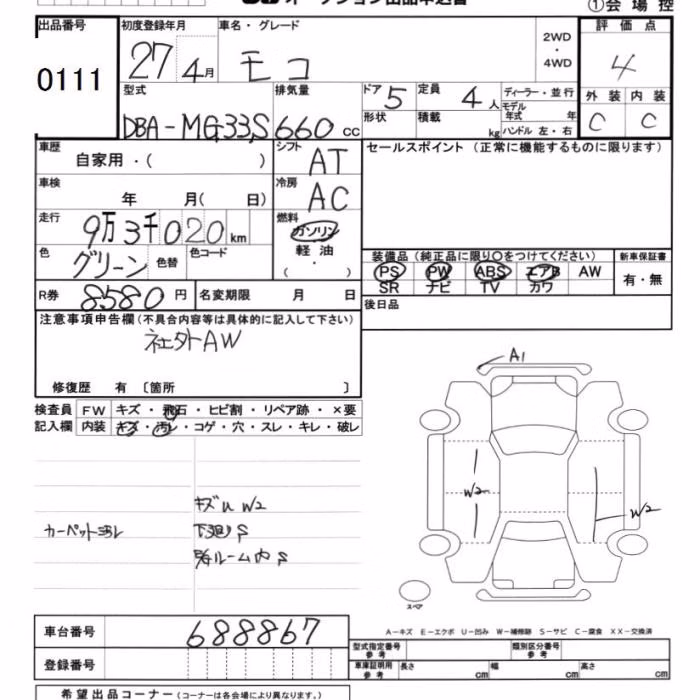 オークション出品申込書
①会場控
出品番号
0111
初度登録年月
27 4月
車名・グレード
モコ
2WD
・
4WD
評価点
4
外装 内装
C C
型式
DBA-MG33S
排気量
660 cc
ドア 5
形状
定員 4 人
積載 kg
ディーラー・並行
モデル
年式 年
ハンドル 左・右
車歴
自家用・( )
シフト
AT
セールスポイント (正常に機能するものに限ります)
車検
年 月( 日)
冷房
AC
走行
9万3千020km
燃料
ガソリン
軽油
( ・ )
色
グリーン
色替
色コード
装備品 (純正品に限り○をつけてください)
PS PW ABS エアB AW
SR ナビ TV カワ
新車保証書
有・無
R券 8580円
名変期限 月 日
後日品
注意事項申告欄(不具合内容等は具体的に記入して下さい)
社外AW
修復歴 有 〔箇所 〕
検査員 FW キズ・飛石・ヒビ割・リペア跡・×要
記入欄 内装 キズ・汚レ・コゲ・穴・スレ・キレ・破レ
キズU W2
カーペット汚レ
下廻りS
ルーム内S
A1
W2
W2
スペア
A-キズ E-エクボ U-凹み W-補修跡 S-サビ C-腐食 XX-交換済
車台番号 688867
登録番号
型式指定番号
参考
類別区分番号
参考
車庫証明用
参考
長さ cm
幅 cm
高さ cm
希望出品コーナー (コーナーは各会場により異なります。)